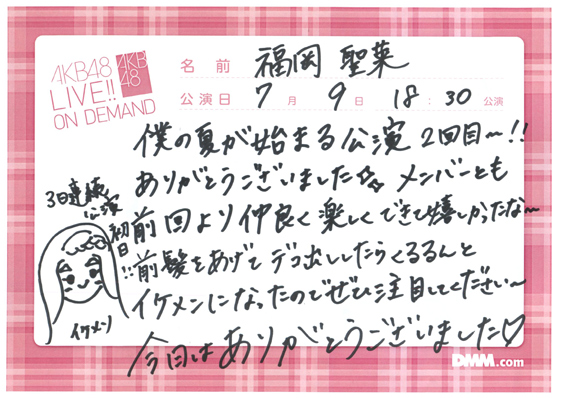 AKB48
LIVE!!
ON DEMAND
AKB
48
名前 福岡 聖菜
公演日 7月9日 18:30公演
僕の夏が始まる公演2回目〜!!
ありがとうございました☆ メンバーとも
前回より仲良く楽しくできて嬉しかったな〜
前髪をあげてデコ出ししたらくるるんと
イケメンになったのでぜひ注目してください〜
今日はありがとうございました♡
3日連続
公演
初日!!
イケメン
DMM.com